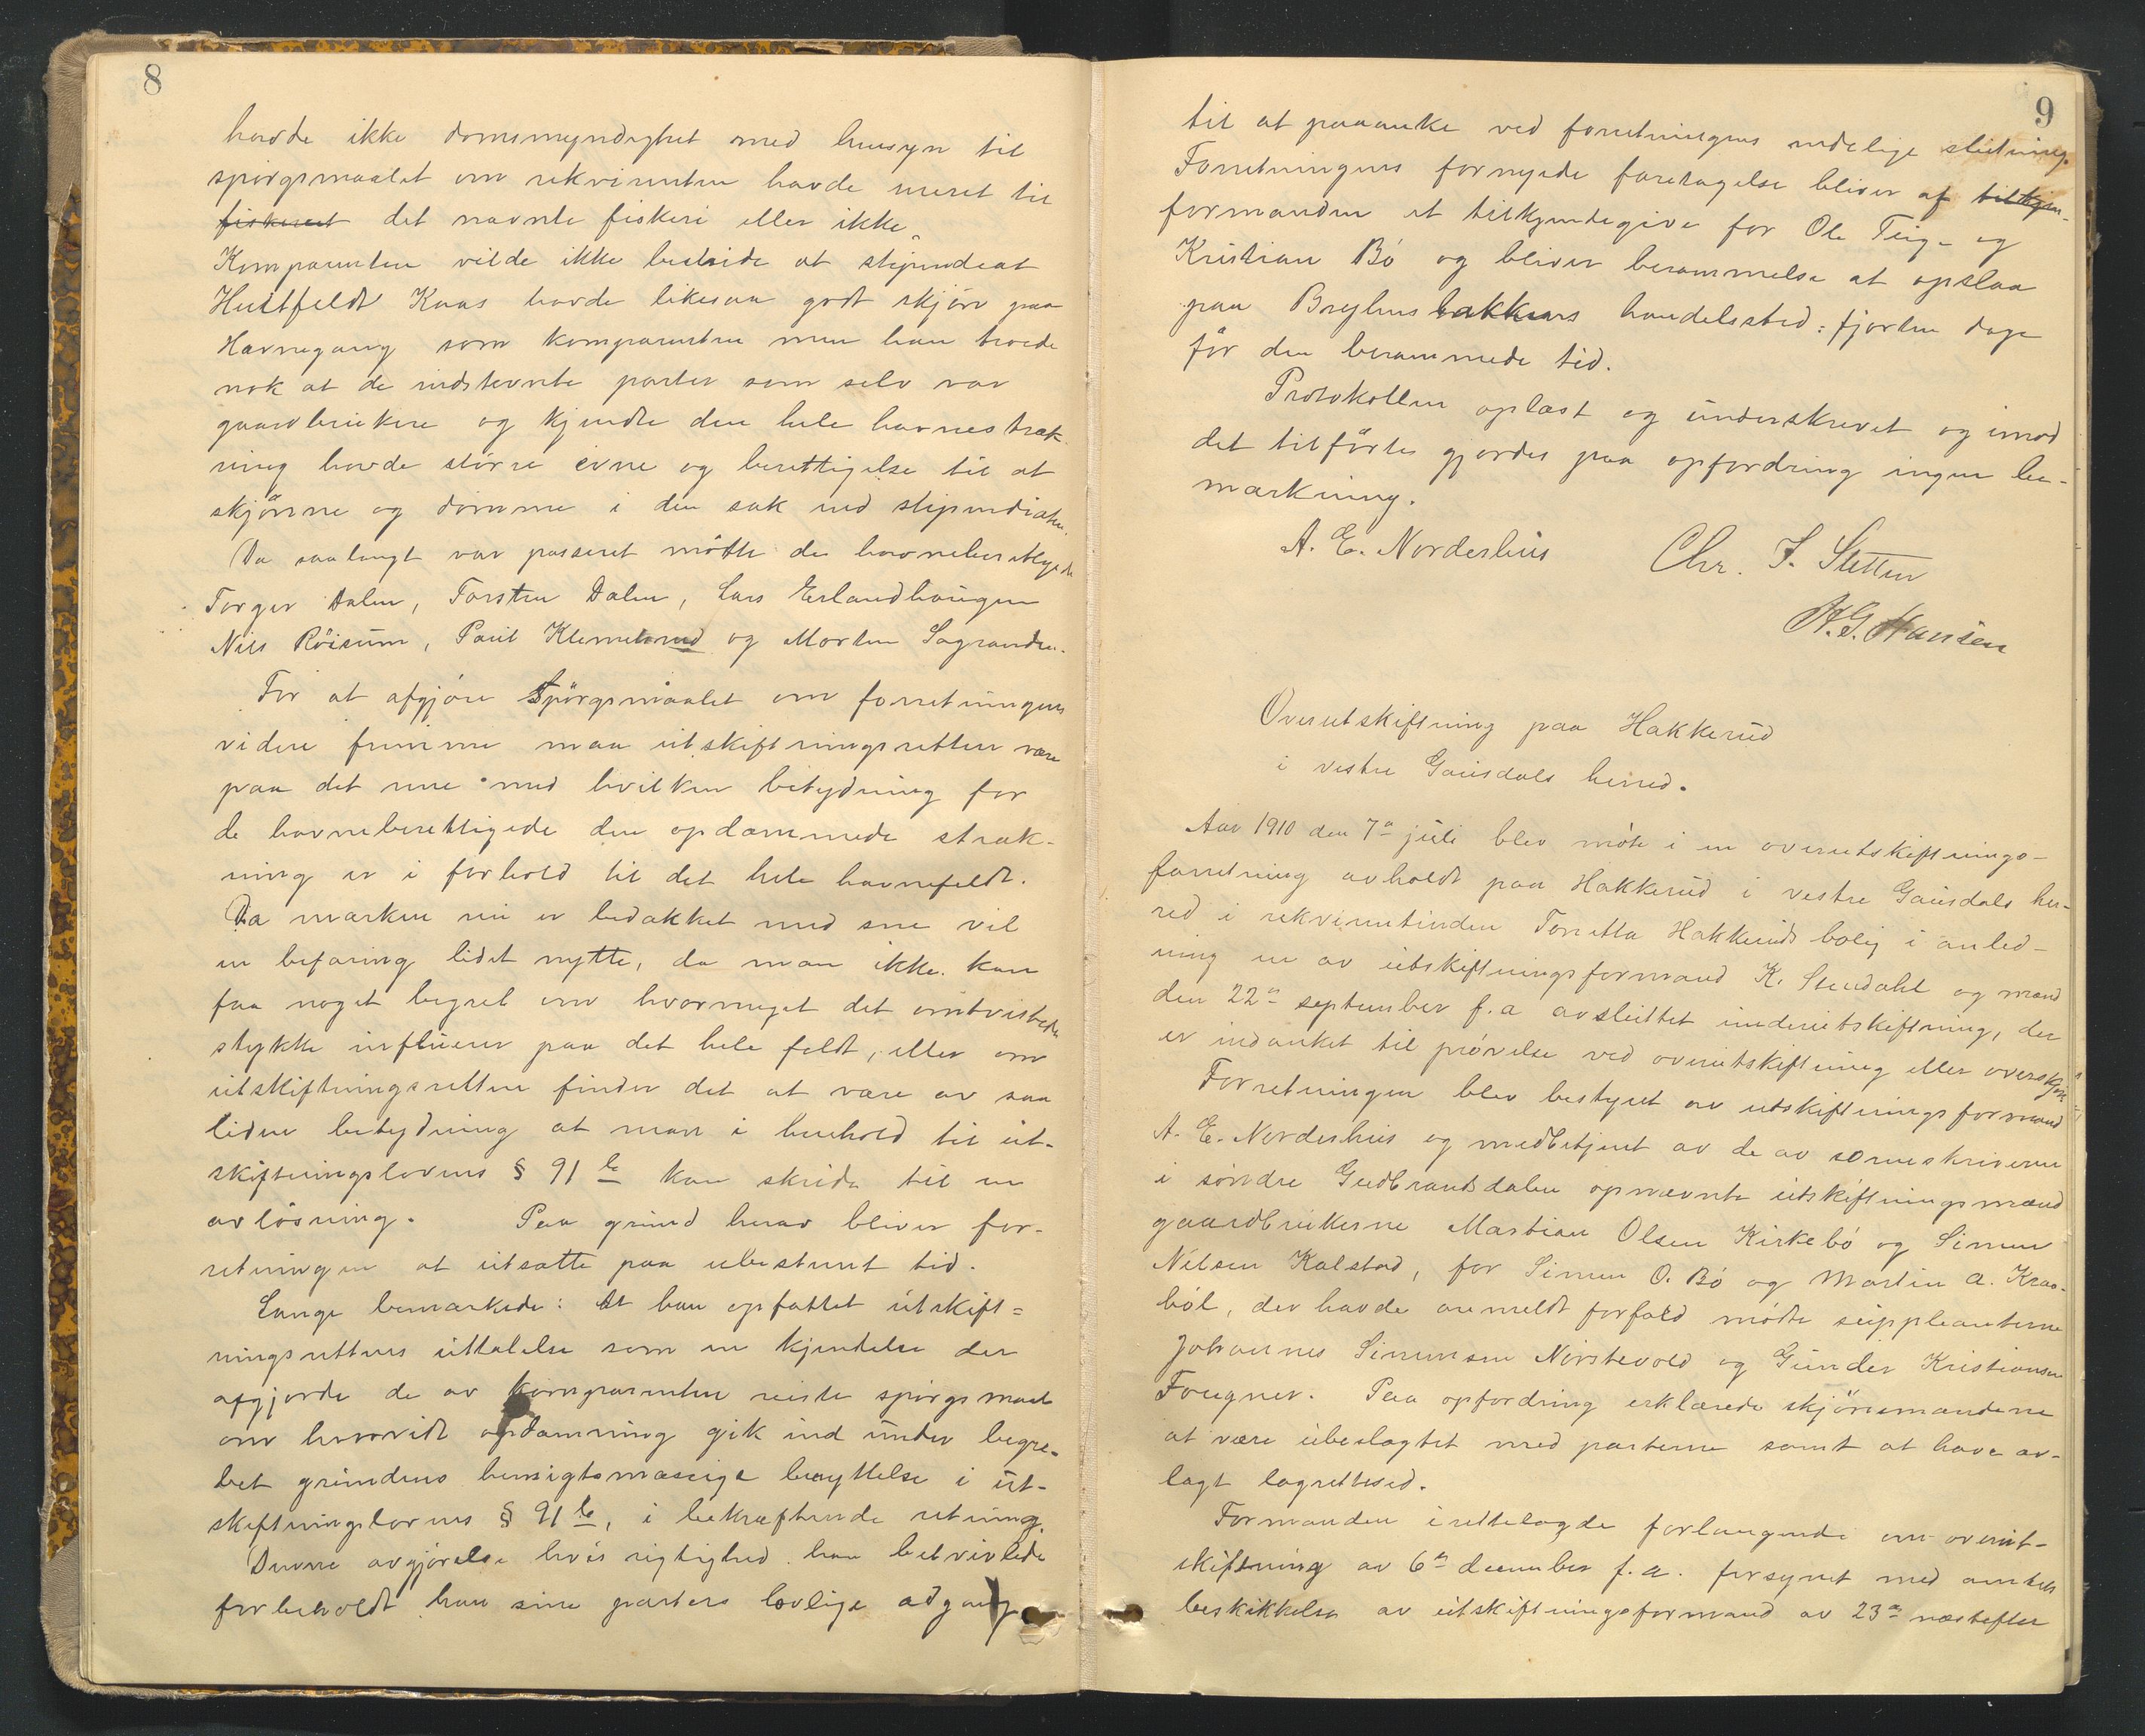 8
havde ikke domsmyndighet med hensyn til
spörgsmaalet om rekvirenten havde ueret til
fiskeriet det nævnte fiskeri eller ikke.
Komparenten vilde ikke bestride at stipendiat
Huitfeldt Kaas havde likesaa godt skjön paa
Havnegang som komparenten men han troede
nok at de indstevnte parter som selv var
gaardbrukere og kjendte den hele havnestræk-
ning havde större evne og berettigelse til at
skjönne og dömme i den sak end stipendiaten.
Da saalangt var passeret mötte de havneberettigede
Torger Dalen, Torsten Dalen, Lars Erlandhaugen
Nils Röisum, Paul Klemetsrud og Morten Sagranden.
For at afgjöre Spörgsmaalet om forretningens
videre fremme maa utskiftningsretten være
paa det rene med hvilken betydning for
de havneberettigede den opdæmmede stræk-
ning er i forhold til det hele havnefeldt.
Da marken nu er bedækket med sne vil
en befaring lidet nytte, da man ikke kan
faa noget begreb om hvormeget det omtvistede
stykke influerer paa det hele feldt, eller om
utskiftningsretten finder det at være av saa
liden betydning at man i henhold til ut-
skiftningslovens § 91 b kan skride til en
avlösning. Paa grund herav bliver for-
retningen at utsætte paa ubestemt tid.
Lange bemærkede: At han opfattet utskift=
ningsrettens uttalelse som en kjendelse der
afgjorde de av komparenten reiste spörgsmaal
om hvorvidt opdæmning gik ind under begre-
bet grundens hensigtsmæssige benyttelse i ut-
skiftningslovens § 91 b, i bekræftende retning.
Denne avgjörelse hvis rigtighed han betvivlede
forbeholdt han sine parters lovlige adgang
9
til at paaanke ved forretningens endelige slutning.
Forretningens fornyede foretagelse bliver af tilkjen-
formanden at tilkjendegive for Ole Teige og
Kristian Bö og bliver berammelse at opslaa
paa Bryhusbakkens handelssted: fjorten dage
för den berammede tid.
Protokollen oplæst og underskrevet og imod
det tilförte gjordes paa opfordring ingen be-
mærkning.
A. E. Nordeshus Chr. J. Sletten
H.G. Hansen
Overutskiftning paa Hakkerud
i vestre Gausdals herred.
Aar 1910 den 7de juli blev möte i en overutskiftnings-
forretning avholdt paa Hakkerud i vestre Gausdals her-
red i rekvirentinden Toretta Hakkeruds bolig i anled-
ning en av utskiftningsformand K. Stendahl og mænd
den 22de september f.a avsluttet underutskiftning, der
er indanket til prövelse ved overutskiftning eller overskjön
Forretningen blev bestyret av utskiftningsformand
A. E. Nordeshus og medbetjent av de av sorenskriveren
i söndre Gudbrandsdalen opnævnte utskiftningsmænd
gaardbrukerne Martian Olsen Kirkebö og Simen
Nilsen Kalstad, for Simen O. Bö og Martin A. Kraa-
böl, der havde anmeldt forfald mödte suppleanterne
Johannes Simensen Norstevold og Gunder Kristiansen
Fougner. Paa opfordring erklærede skjönsmændene
at være ubeslægtet med parterne samt at have av-
lagt lagrettesed.
Formanden irettelagde forlangende om overut-
skiftning av 6de december f.a. forsynet med amtets
beskikkelse av utskiftningsformand av 23de næstefter